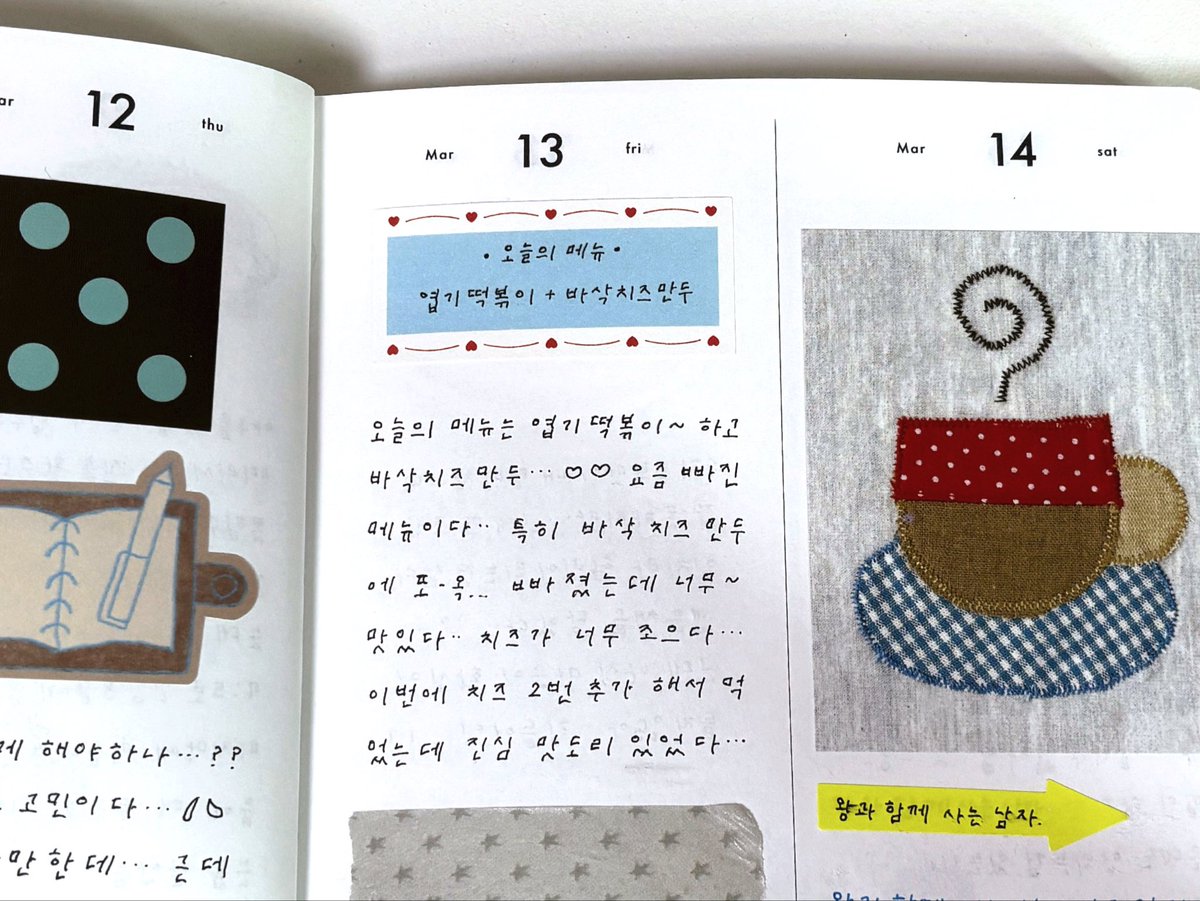 12
thu
해야하나…??
고민이다…
만한데… 근데
Mar 13 fri
• 오늘의 메뉴 •
엽기떡볶이 + 바삭치즈만두
오늘의 메뉴는 엽기떡볶이~ 하고
바삭치즈만두… ♡♡ 요즘 빠진
메뉴이다.. 특히 바삭 치즈 만두
에 포-옥... 빠졌는데 너무~
맛있다.. 치즈가 너무 조으다…
이번에 치즈 2번 추가 해서 먹
었는데 진심 맛도리 있었다…
Mar 14 sat
왕과 함께 사는 남자.